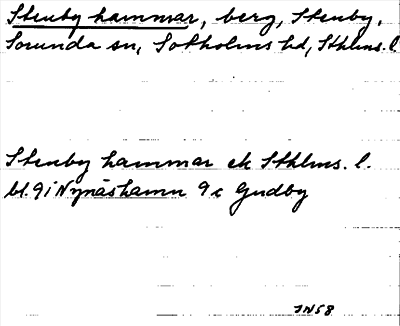 Stenby hammar, berg, Stenby,
Sorunda sn, Sotholms hd, Sthlms. l.
Stenby hammar ek Sthlms. l.
bl. 9i Nynäshamn 9c Gudby
IN58